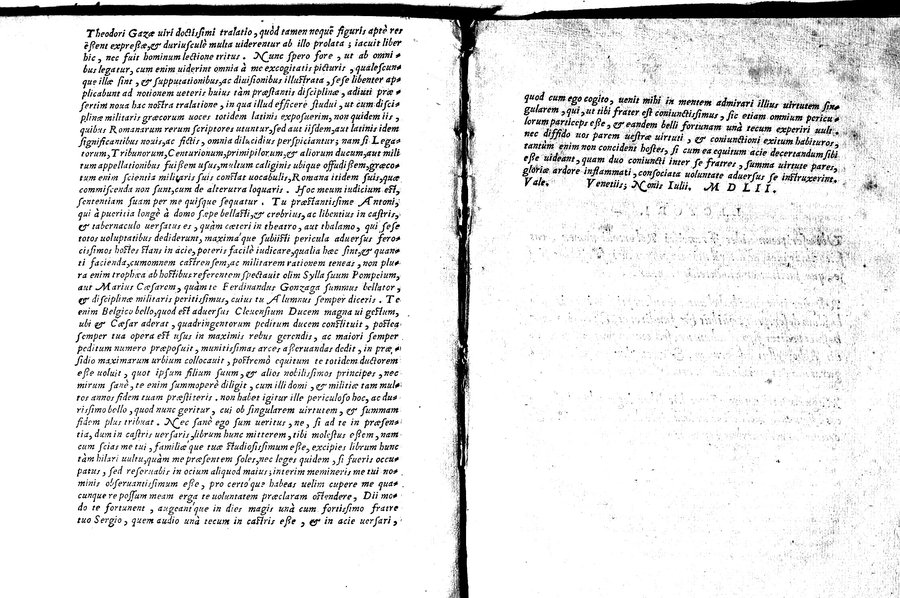 Theodori Gazæ uiri doctissimi tralatio, quòd tamen nequè figuris aptè res
essent expressæ, & duriusculè multa uiderentur ab illo prolata; iacuit liber
hic, nec fuit hominum lectione tritus. Nunc spero fore, ut ab omni-
bus legatur, cum enim uiderint omnia à me excogitatis picturis, qualescun-
que illæ sint, & supputationibus, ac diuisionibus illustrata, sese libenter ap-
plicabunt ad notionem ueteris huius tàm præstantis disciplinæ, adiuti præ-
sertim noua hac nostra tralatione, in qua illud efficere studui, ut cum disci-
plinæ militaris græcorum uoces totidem latinis exposuerim, non quidem iis,
quibus Romanarum rerum scriptores utuntur, sed aut iisdem, aut latinis idem
significantibus nouis, ac fictis, omnia dilucidius perspiciantur; nam si Lega-
torum, Tribunorum, Centurionum, primipilorum, & aliorum ducum, aut mili
tum appellationibus fuissem usus, multum caliginis ubique offudissem, græco-
tum enim scientia militaris suis constat uocabulis, Romana itidem suis, quæ
commiscenda non sunt, cum de alterutra loquaris. Hoc meum iudicium est,
sententiam suam per me quisque sequatur. Tu præstantissime Antoni,
qui à pueritia longè à domo sæpe bellasti, & crebrius, ac libentius in castris,
& tabernaculo uersatus es, quàm cæteri in theatro, aut thalamo, qui sese
totos uoluptatibus dediderunt, maximaq́ue subiisti pericula aduersus fero-
cissimos hostes stans in acie, poteris facilè iudicare, qualia hæc sint, & quan-
ti facienda, cum omnem castrensem, ac militarem rationem teneas, non plu-
ra enim trophæa ab hostibus referentem spectauit olim Sylla suum Pompeium,
aut Marius Cæsarem, quàm te Ferdinandus Gonzaga summus bellator,
& disciplinæ militaris peritissimus, cuius tu Alumnus semper diceris. Te
enim Belgico bello, quod est aduersus Cleuensium Ducem magna ui gestum,
ubi & Cæsar aderat, quadringentorum peditum ducem constituit, postea
semper tua opera est usus in maximis rebus gerendis, ac maiori semper
peditum numero præposuit, munitissimas arces asseruandas dedit, in præ-
sidio maximarum urbium collocauit, postremò equitum te totidem ductorem
esse uoluit, quot ipsum filium suum, & alios nobilissimos principes, nec
mirum sanè, te enim summoperè diligit, cum illi domi, & militiæ tam mul-
tos annos fidem tuam præstiteris. non habet igitur ille periculoso hoc, ac du-
rissimo bello, quod nunc geritur, cui ob singularem uirtutem, & summam
fidem plus tribuat. Nec sanè ego sum ueritus, ne, si ad te in præsen-
tia, dum in castris uersaris, librum hunc mitterem, tibi molestus essem, nam
cum scias me tui, familiæq́ue tuæ studiosissimum esse, excipies librum hunc
tàm hilari uultu, quàm me præsentem soles, nec leges quidem, si fueris occu-
patus, sed reseruabis in ocium aliquod maius; interim memineris me tui no-
minis obseruantissimum esse, pro certoq́ue habeas uelim cupere me qua-
cunque re possum meam erga te uoluntatem præclaram ostendere, Dii mo-
do te fortunent, augeantq́ue in dies magis unà cum fortissimo fratre
tuo Sergio, quem audio unà tecum in castris esse, & in acie uersari,
quod cum ego cogito, uenit mihi in mentem admirari illius uirtutem sin-
gularem, qui, ut tibi frater est coniunctissimus, sic etiam omnium pericu-
lorum particeps esse, & eandem belli fortunam unà tecum experiri uult.
nec diffido nos parem uestræ uirtuti, & coniunctioni exitum habituros,
tantum enim non concident hostes, si cum ea equitum acie decertandum sibi
esse uideant, quam duo coniuncti inter se fratres, summa uirtute pares,
gloriæ ardore inflammati, consociata uoluntate aduersus se instruxerint.
Vale. Venetiis; Nonis Iulii. MDLII.